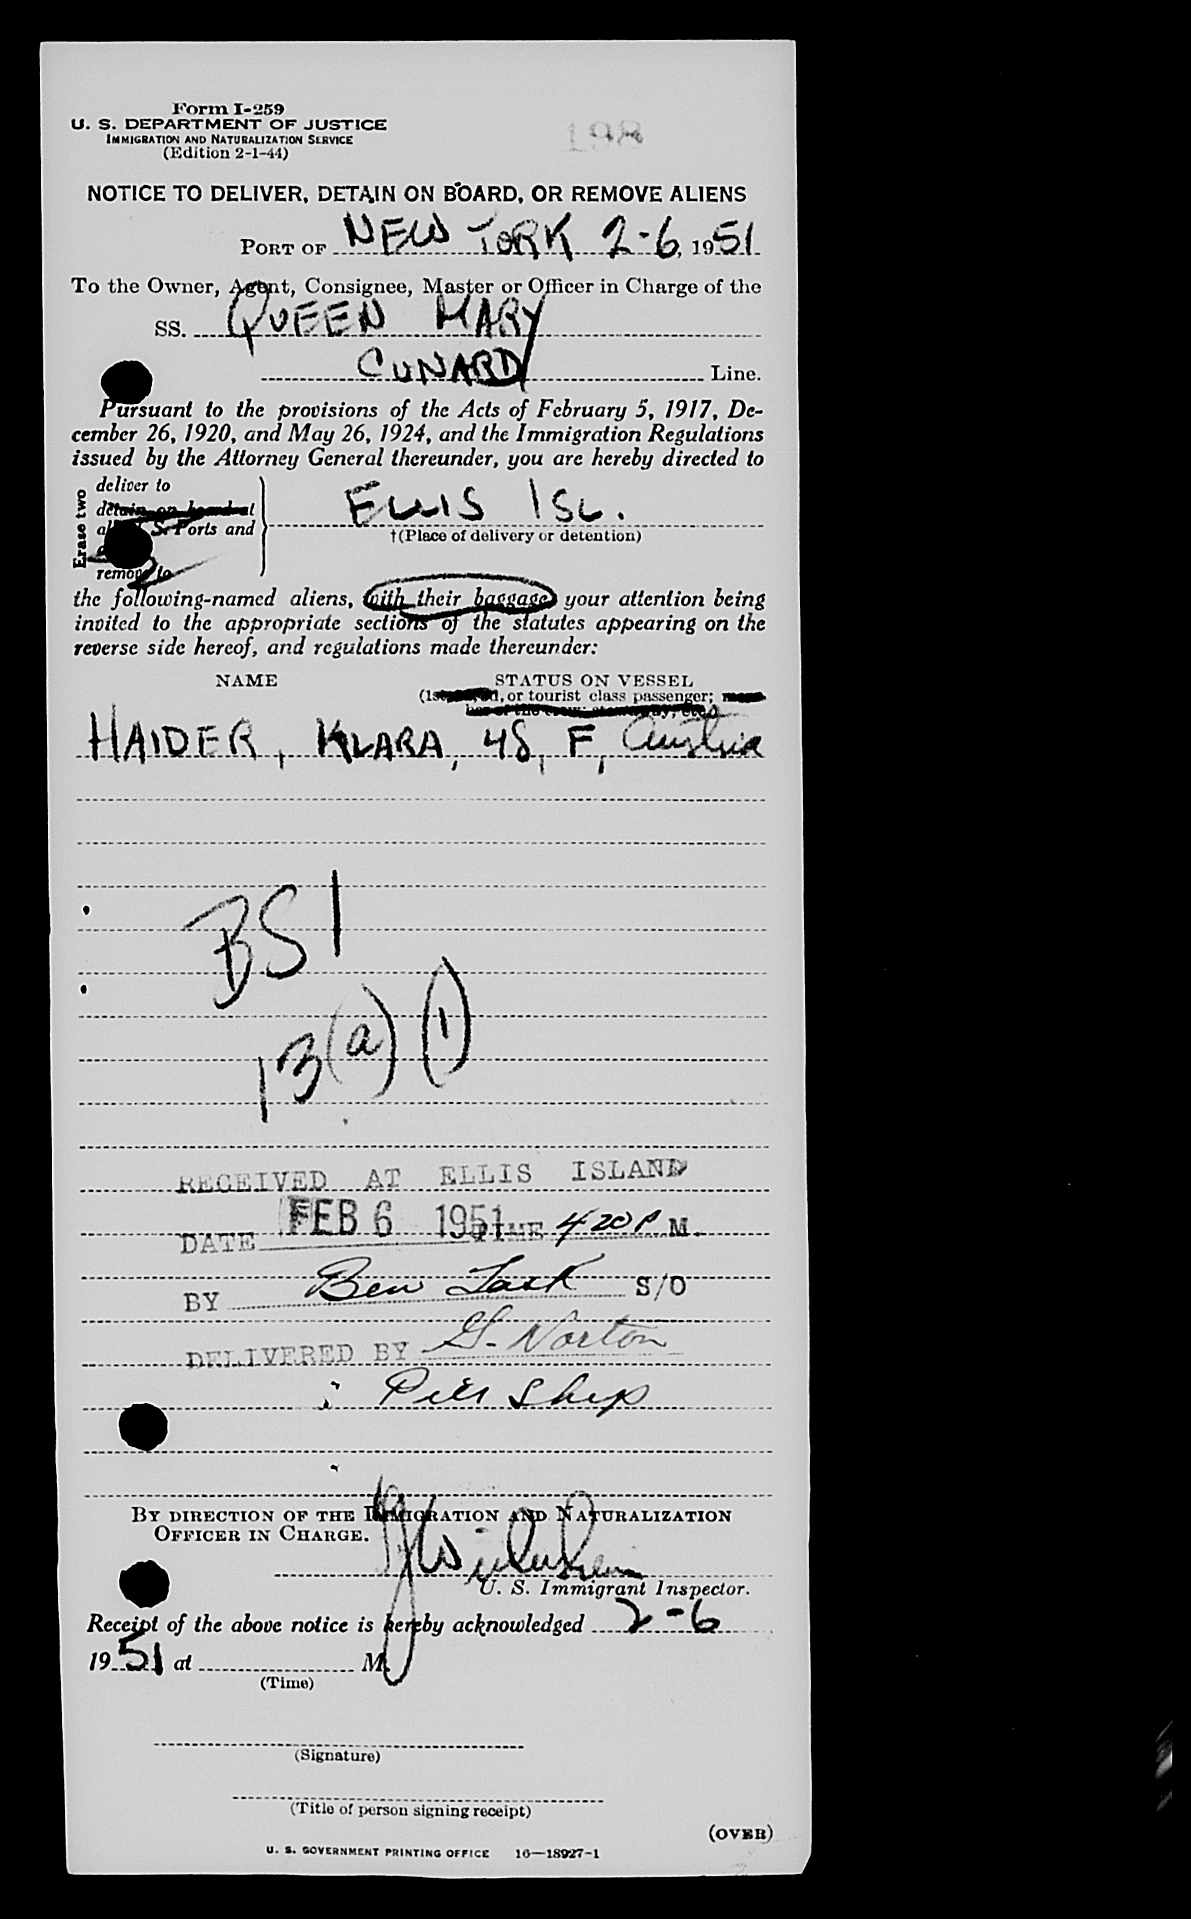 Form I-259
U. S. DEPARTMENT OF JUSTICE
IMMIGRATION AND NATURALIZATION SERVICE
(Edition 2-1-44)
198
NOTICE TO DELIVER, DETAIN ON BOARD, OR REMOVE ALIENS
PORT OF NEW YORK 2-6, 1951
To the Owner, Agent, Consignee, Master or Officer in Charge of the
SS. QUEEN MARY
CUNARD Line.
Pursuant to the provisions of the Acts of February 5, 1917, De-
cember 26, 1920, and May 26, 1924, and the Immigration Regulations
issued by the Attorney General thereunder, you are hereby directed to
Erase two
deliver to
detain on board at
S. Ports and
remove to
ELLIS ISL.
†(Place of delivery or detention)
the following-named aliens, with their baggage, your attention being
invited to the appropriate sections of the statutes appearing on the
reverse side hereof, and regulations made thereunder:
NAME STATUS ON VESSEL
or tourist class passenger;
HAIDER, KLARA, 48, F, Austria
BSI
13(a)(1)
RECEIVED AT ELLIS ISLAND
DATE FEB 6 1951 TIME 4 20 P M.
BY Ben S/O
DELIVERED BY G. Norton
Pier Ship
BY DIRECTION OF THE IMMIGRATION AND NATURALIZATION
OFFICER IN CHARGE.
U. S. Immigrant Inspector.
Receipt of the above notice is hereby acknowledged 2-6
1951 at M.
(Time)
(Signature)
(Title of person signing receipt)
(OVER)
U. S. GOVERNMENT PRINTING OFFICE 16—18927-1